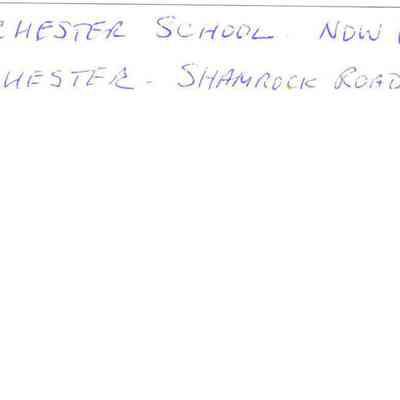 CHESTER SCHOOL. NOW
HESTER - SHAMROCK ROAD